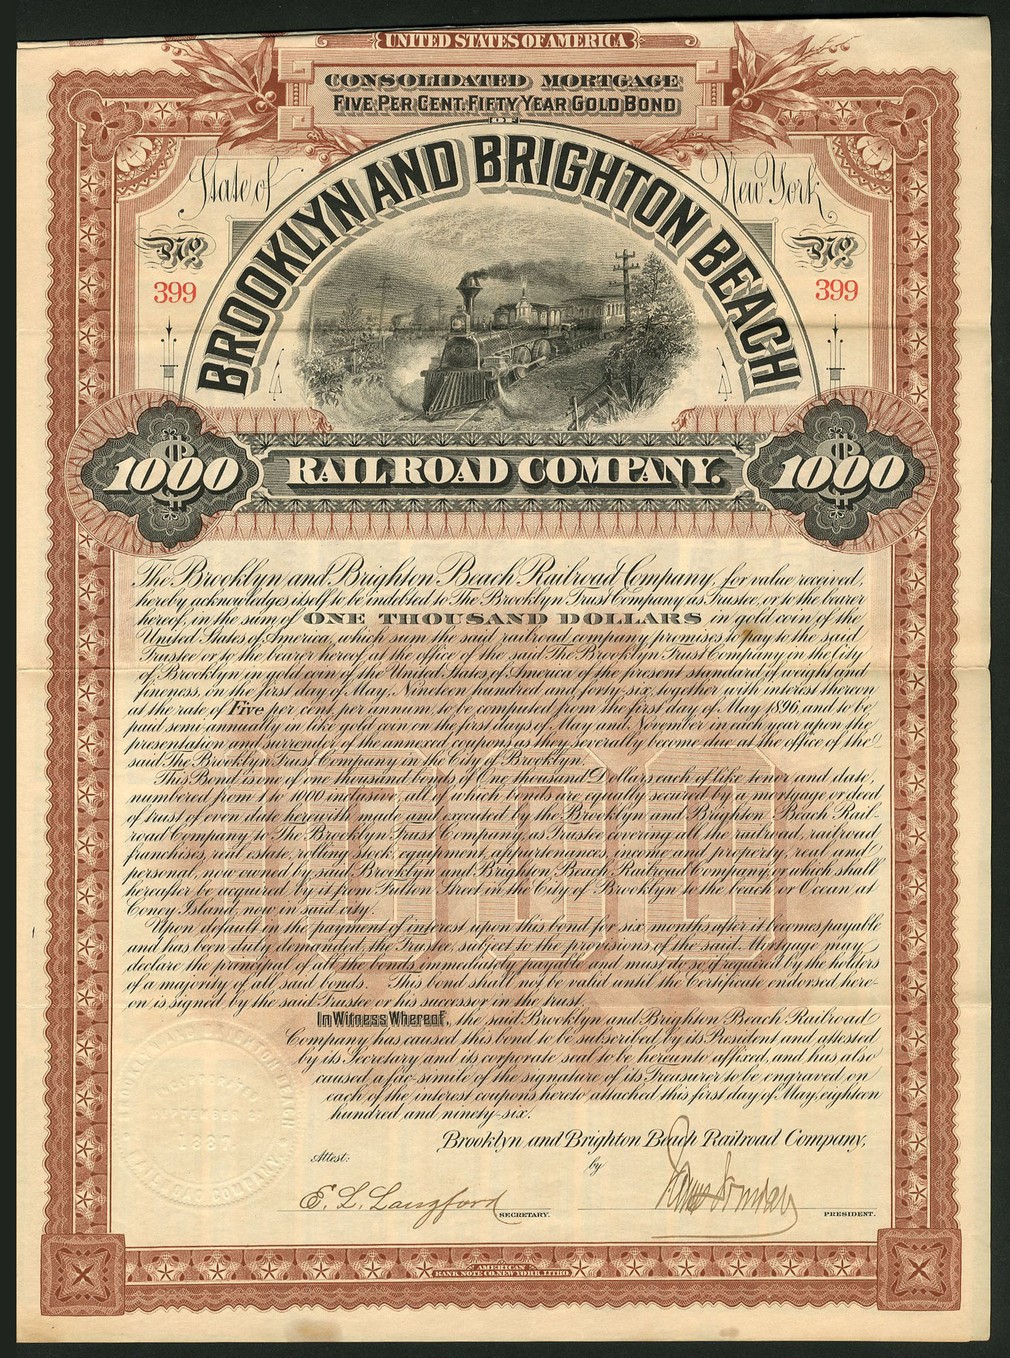 UNITED STATES OF AMERICA
CONSOLIDATED MORTGAGE
FIVE PER CENT. FIFTY YEAR GOLD BOND
OF
State of New York
BROOKLYN AND BRIGHTON BEACH
No No
399 399
$1000 RAILROAD COMPANY. $1000
The Brooklyn and Brighton Beach Railroad Company, for value received,
hereby acknowledges itself to be indebted to The Brooklyn Trust Company as Trustee, or to the bearer
hereof, in the sum of ONE THOUSAND DOLLARS in gold coin of the
United States of America, which sum the said railroad company promises to pay to the said
Trustee or to the bearer hereof at the office of the said The Brooklyn Trust Company in the City
of Brooklyn in gold coin of the United States of America of the present standard of weight and
fineness, on the first day of May, Nineteen hundred and forty-six, together with interest thereon
at the rate of Five per cent. per annum, to be computed from the first day of May 1896, and to be
paid semi-annually in like gold coin on the first days of May and November in each year upon the
presentation and surrender of the annexed coupons as they severally become due at the office of the
said The Brooklyn Trust Company in the City of Brooklyn.
This Bond is one of one thousand bonds of One thousand Dollars each of like tenor and date,
numbered from 1 to 1000 inclusive, all of which bonds are equally secured by a mortgage or deed
of trust of even date herewith made and executed by the Brooklyn and Brighton Beach Rail-
road Company to The Brooklyn Trust Company as Trustee covering all the railroad, railroad
franchises, real estate, rolling stock, equipment, appurtenances, income and property, real and
personal, now owned by said Brooklyn and Brighton Beach Railroad Company, or which shall
hereafter be acquired by it from Fulton Street in the City of Brooklyn to the beach or Ocean at
Coney Island, now in said city.
Upon default in the payment of interest upon this bond for six months after it becomes payable
and has been duly demanded, the Trustee, subject to the provisions of the said Mortgage may
declare the principal of all the bonds immediately payable and must do so if required by the holders
of a majority of all said bonds. This bond shall not be valid until the Certificate endorsed here-
on is signed by the said Trustee or his successor in the trust.
In Witness Whereof, the said Brooklyn and Brighton Beach Railroad
Company has caused this bond to be subscribed by its President and attested
by its Secretary and its corporate seal to be hereunto affixed, and has also
caused a fac-simile of the signature of its Treasurer to be engraved on
each of the interest coupons hereto attached this first day of May, eighteen
hundred and ninety-six.
Brooklyn and Brighton Beach Railroad Company,
Attest: by
E. L. Langford SECRETARY. PRESIDENT.
AMERICAN
BANK NOTE CO. NEW YORK, LITHO.